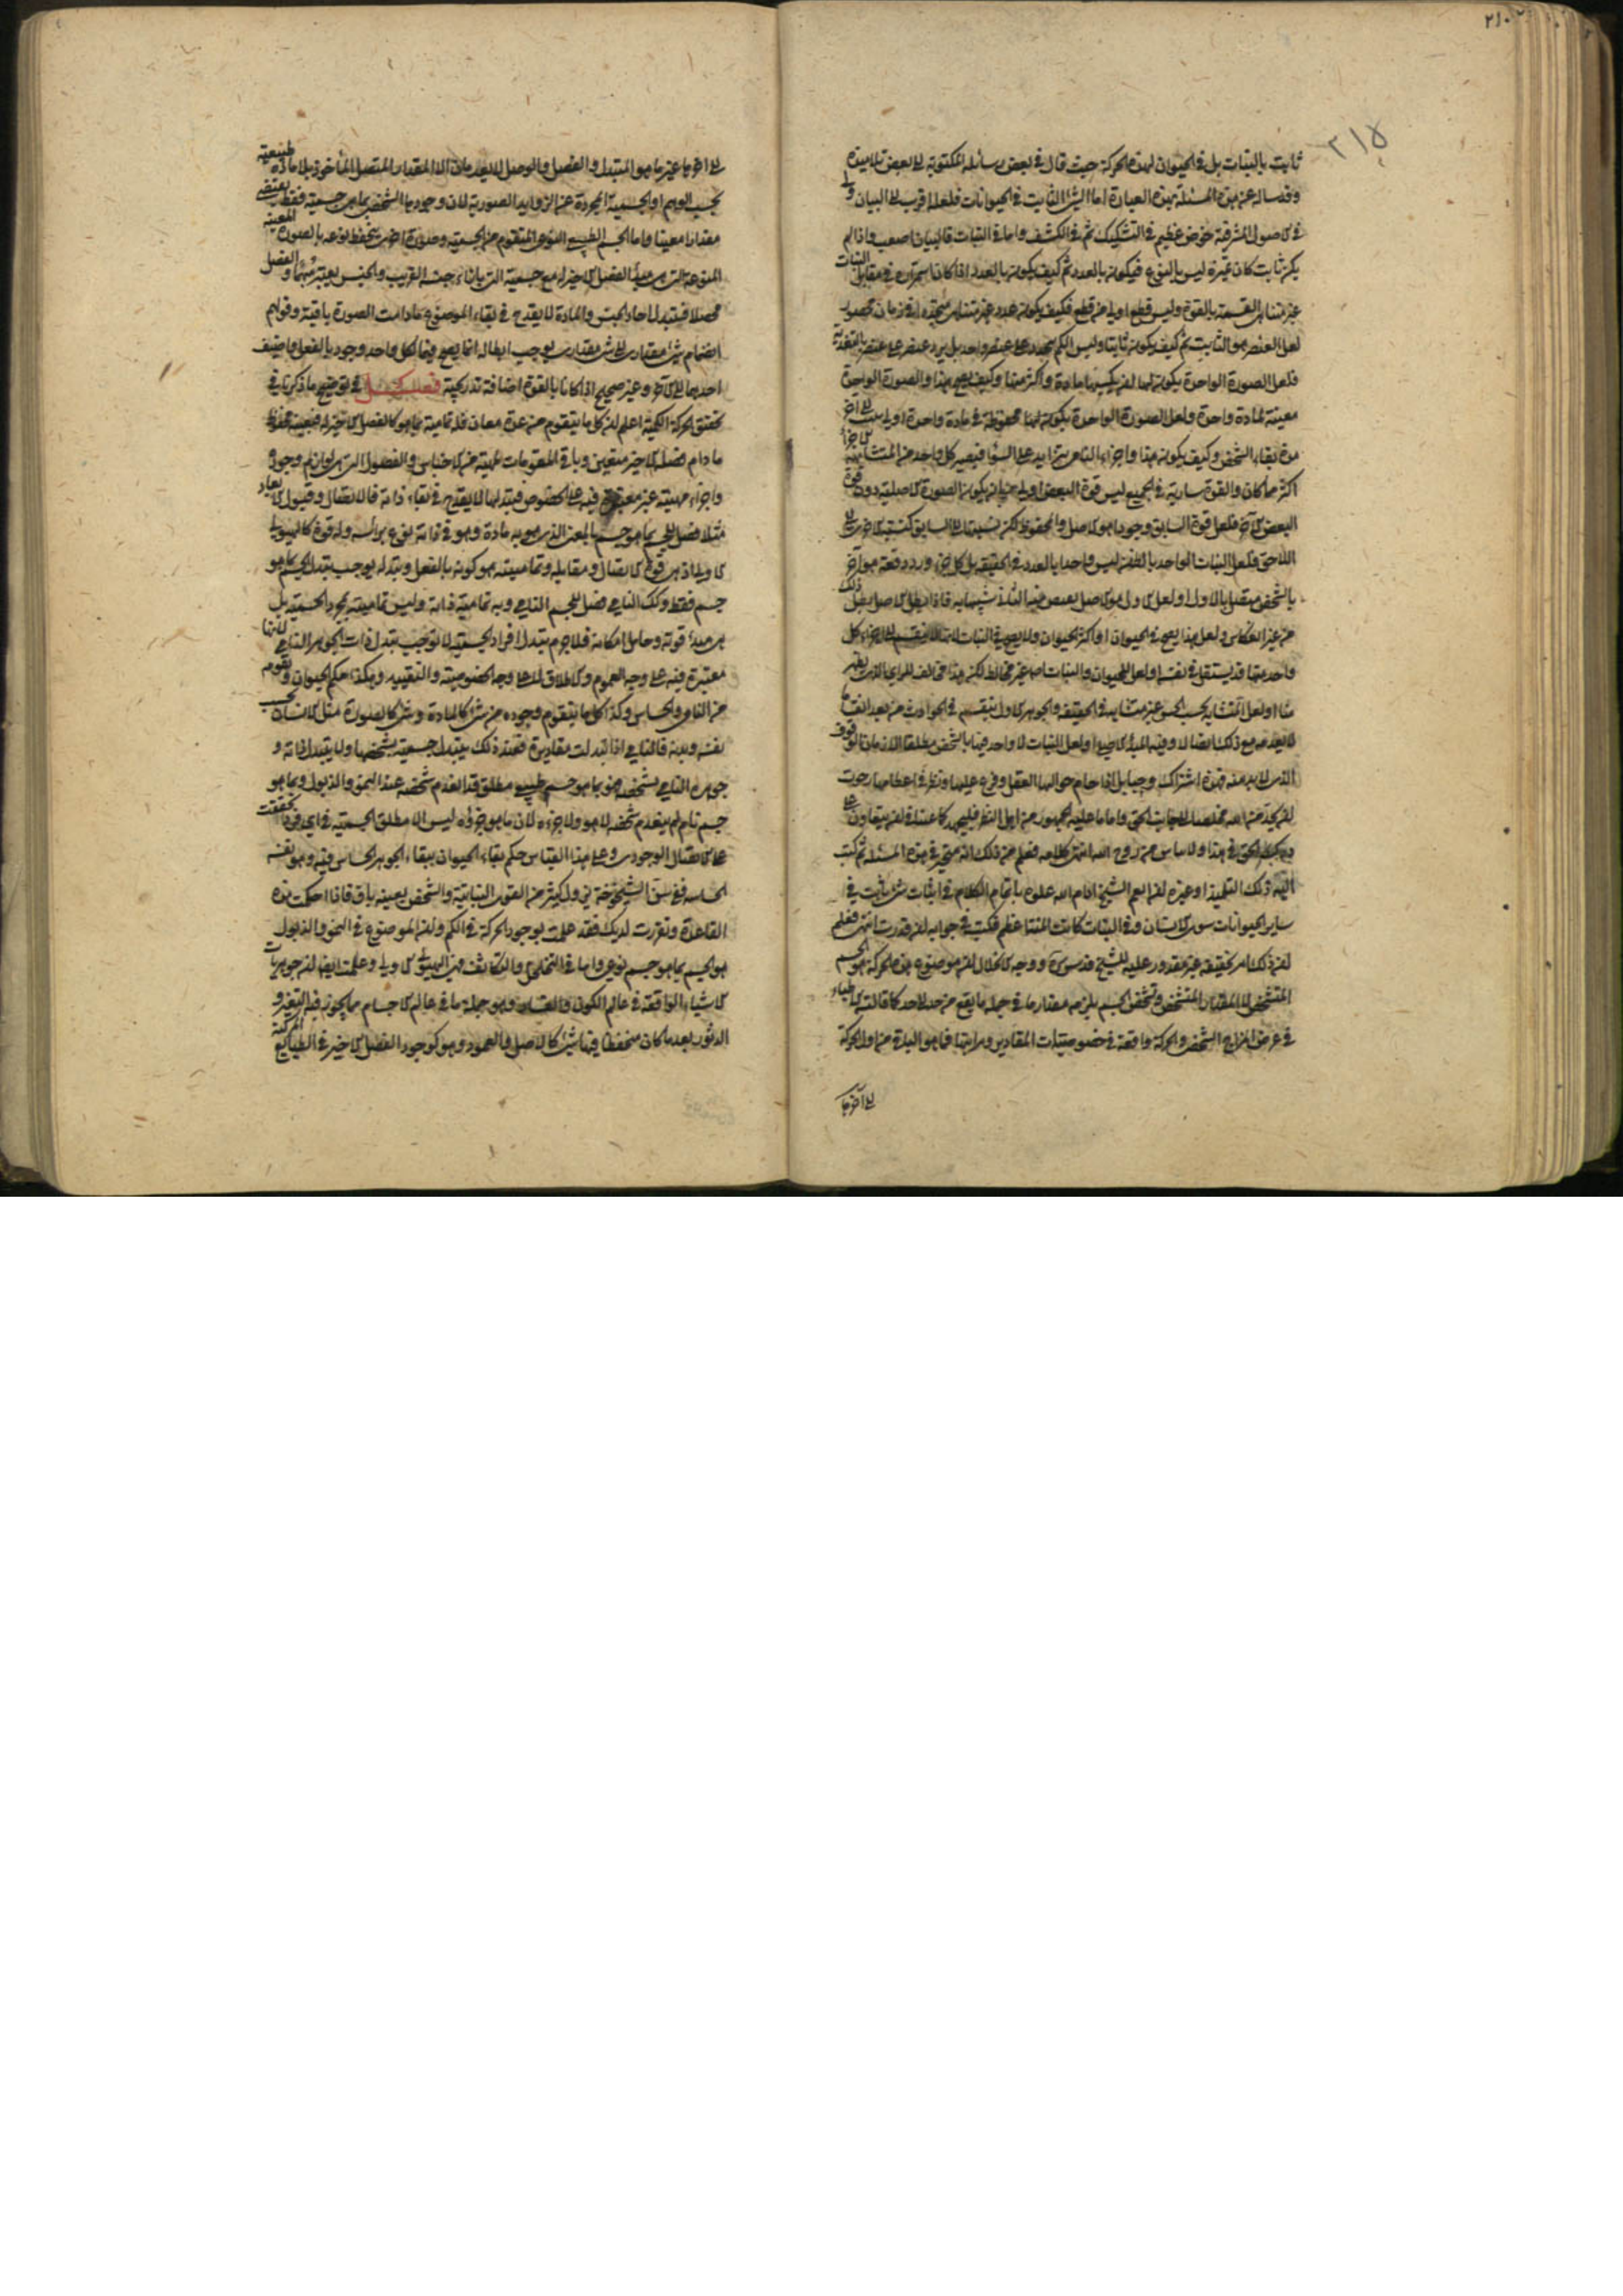 ٢١٠
٢١٥
ثابت بالنبات بل في الحيوان لهذه الحركة حيث قال في بعض رسائله المكتوبة الى بعض تلاميذه
وقد ساله عن هذه المسئلة بهذه العبارة اما الشئ الثابت في الحيوانات فلعله اقرب الى البيان ولي
في الاصول المشرقية خوض عظيم في التشكيك ثم في الكشف واما في النبات فالبيان اصعب واذا لم
يكن ثابت كان تميزه ليس بالنوع فيكون بالعدد ثم كيف يكون بالعدد اذا كان استمراره في مقابل الثبات
غير متناهي القسمة بالقوة وليس قطع اولى من قطع فكيف يكون عدد غير متناهي متجدد في زمان محصور
لعل العنصر هو الثابت ثم كيف يكون ثابتا وليس الكم يتجدد على عنصر واحد بل يرد عنصر على عنصر بالتغذية
فلعل الصورة الواحدة يكون لها ان يكسبها مادة واكثر منها وكيف يصح هذا والصورة الواحدة
معينة لمادة واحدة ولعل الصورة الواحدة يكون لها محفوظة في مادة واحدة اولى يثبت الى آخر
مدة بقاء الشخص وكيف يكون هذا واجزاء النامي يتزايد على السواء فيصير كل واحد من المتشابهة الاجزاء
اكثر مما كان والقوة سارية في الجميع ليس قوة البعض اولى من ان يكون الصورة الاصلية دون قوة
البعض الآخر فلعل قوة السابق وجودا هو الاصل والمحفوظ لكن نسبتها الى السابق كنسبة الاخرى الى
اللاحق فلعل النبات الواحد بالظن ليس واحدا بالعدد في الحقيقة بل كل جزء ورد دفعة هو آخر
بالشخص متصل بالاول او لعل الاول هو الاصل يفيض منه الثاني شبيها به فاذا بطل الاصل بطل ذلك
من غير انعكاس ولعل هذا يصح في الحيوان او اكثر الحيوان ولا يصح في النبات لانها لا ينقسم الى اجزاء كل
واحد منها قد يستقل في نفسه او لعل للحيوان والنبات اصلا غير مخالط لكن هذا مخالف للراى الذي يظهر
منا او لعل المتشابه بحسب الحس غير متشابه في الحقيقة والجوهر الاول ينقسم في الحوادث من بعد انقساما
لا يعدمه مع ذلك اتصالا وفيه المبدأ الاصلي او لعل النبات لا واحد فيها بالشخص مطلقا الا زمان الوقوف
الذي لا بد منه فهذه اشراك وحبايل اذا حام حواليها العقل وفرع عليها ونظر في اعطافها رجوت
ان يجد من الله مخلصا الى جانب الحق واما ما عليه الجمهور من اهل النظر فليجهد كاعتنا في ان يتعاون على
درك الحق في هذا ولا يياس من روح الله انتهى كلامه فعلم من ذلك انه متحير في هذه المسئلة ثم كتب
اليه ذلك التلميذ او غيره ان انعم الشيخ ادام الله علوه باتمام الكلام في اثبات شئ ثابت في
ساير الحيوانات سوى الانسان وفي النبات كانت المنة اعظم فكتب في جوابه ان قدرت انتهى فعلم
ان ذلك امر تحقيقه غير مقدور عليه للشيخ قدس سره ووجه الانحلال ان موضوع هذه الحركة هو الجسم
المتشخص لا المقدار المتشخص وتشخص الجسم يلزمه مقدار ما في جملة ما يقع من حد الى حد كما قالته الاطباء
في عرض المزاج الشخصي والحركة واقعة في خصوصيات المقادير ومراتبها فما هو الباقي من اول الحركة
الى آخرها
الى آخرها غير ما هو المتبدل والفصل والوصل لا يعدمان الا المقدار المتصل المأخوذ بلا مادة طبيعية
بحسب الوهم او الجسمية المجردة عن الزوايد الصورية لان وجودها الشخصي بما هي جسمية فقط يقتضي
مقدارا معينا واما الجسم الطبيعي النوعي المتقوم من الجسمية وصورة اخرى ينحفظ نوعه بالصورة المعينة
المنوعة التي هي مبدأ الفصل الاخير له مع جسمية التي بازاء جنسه القريب والجنس يعتبر مبهما والفصل
محصلا فتبدل آحاد الجنس والمادة لا يقدح في بقاء الموضوع ما دامت الصورة باقية وقولهم
انضمام شئ مقداري الى شئ مقداري يوجب ابطاله انما يصح فيما لكل واحد وجود بالفعل واضيف
احدهما الى الآخر وغير صحيح اذا كانا بالقوة اضافة تدريجية فصل في توضيح ما ذكرنا في
تحقيق الحركة الكمية اعلم ان كل ما يتقوم من عدة معان فله تمامية بما هو كالفصل الاخير له فتعينه محفوظ
ما دام فصله الاخير متعين وباقي المقومات لمهيته من الاجناس والفصول التي هي لوازم وجوده
واجزاء مهيته غير معتبرة فيه على الخصوص فتبدلها لا يقدح في بقاء ذاته فالاتصال وقبول الابعاد
مثلا فصل للجسم بما هو جسم بالمعنى الذي هو به مادة وهو في ذاته نوع برأسه وله قوة كالهيولى
الاولى اذ هي قوة الاتصال ومقابله وتماميته هو كونه بالفعل وتبدله يوجب تبدل الجسم بما هو
جسم فقط وكذلك النامي فصل للجسم النامي وبه تمامية ذاته وليس تماميته بمجرد الجسمية بل
هي مبدأ قوته وحامل امكانه فلا جرم تبدل افراد الجسمية لا توجب تبدل ذات الجوهر النامي لانها
معتبرة فيه على وجه العموم والاطلاق لا على وجه الخصوصية والتقييد وهكذا حكم الحيوان وتقومه
من النامي والحساس وكذا كل ما يتقوم وجوده من شئ كالمادة وشئ كالصورة مثل الانسان بحسب
نفسه وبدنه فالنامي اذا تبدلت مقاديره فعند ذلك يتبدل جسميته بشخصها ولا يتبدل ذاته و
جوهره النامي بشخصه فهو بما هو جسم طبيعي مطلق قد انعدم شخصه عند النمو والذبول وبما هو
جسم نام لم ينعدم شخصه لا هو ولا جزءه لان ما هو جزءه ليس الا مطلق الجسمية في اي فرد تحققت
على الاتصال الوجودي وعلى هذا القياس حكم بقاء الحيوان ببقاء الجوهر الحساس فيه وهو نفسه
الحساسة ففي سن الشيخوخة يزول كثير من القوى النباتية والشخص بعينه باق فاذا احكمت هذه
القاعدة وتقررت لديك فقد علمت بوجود الحركة في الكم وان الموضوع في النمو والذبول
هو الجسم بما هو جسم نوعي واما في التخلخل والتكاثف فهي الهيولى الاولى وعلمت ايضا ان جوهريات
الاشياء الواقعة في عالم الكون والفساد وهو جملة ما في عالم الاجسام مما يجوز فيه التغير و
الدثور بعد ما كان منحفظا فيها شئ كالاصل والعمود وهو كوجود الفصل الاخير في الطبايع المركبة